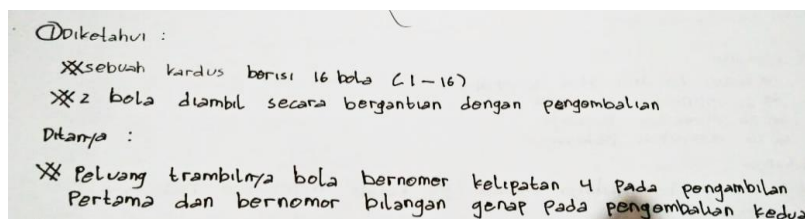 ① Diketahui :
※ sebuah kardus berisi 16 bola (1-16)
※ 2 bola diambil secara bergantian dengan pengembalian
Ditanya :
※ Peluang trambilnya bola bernomer kelipatan 4 pada pengambilan
Pertama dan bernomor bilangan genap pada pengembalian kedua